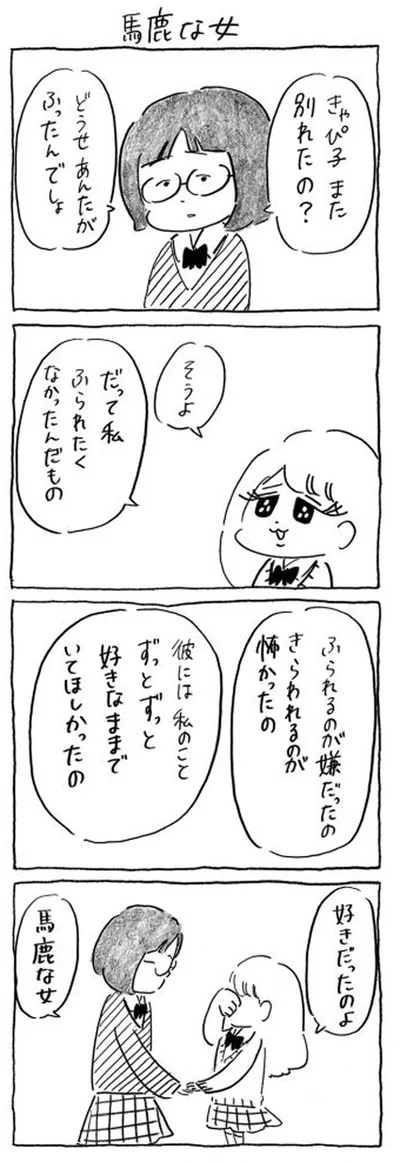 馬鹿な女
きゃぴ子 また
別れたの？
どうせ あんたが
ふったんでしょ
そうよ
だって 私
ふられたく
なかったんだもの
ふられるのが嫌だったの
きらわれるのが
怖かったの
彼には 私のこと
ずっとずっと
好きなままで
いてほしかったの
好きだったのよ
馬鹿な女